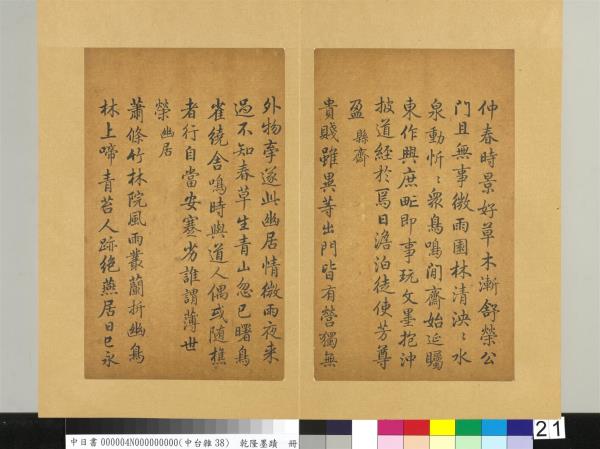 仲春時景好草木漸舒榮公
門且無事微雨園林清泱〻水
泉動忻〻衆鳥鳴閒齋始延矚
東作興庶甿即事玩文墨抱沖
披道經於焉日澹泊徒使芳尊
盈 縣齋
貴賤雖異等出門皆有營獨無
外物牽遂此幽居情微雨夜來
過不知春草生青山忽已曙鳥
雀繞舍鳴時與道人偶或随樵
者行自當安蹇劣誰謂薄世
榮 幽居
蕭條竹林院風雨叢蘭折幽鳥
林上啼青苔人跡絕燕居日已永
中日書 000004N000000000(中台雜38) 乾隆墨蹟 冊
21